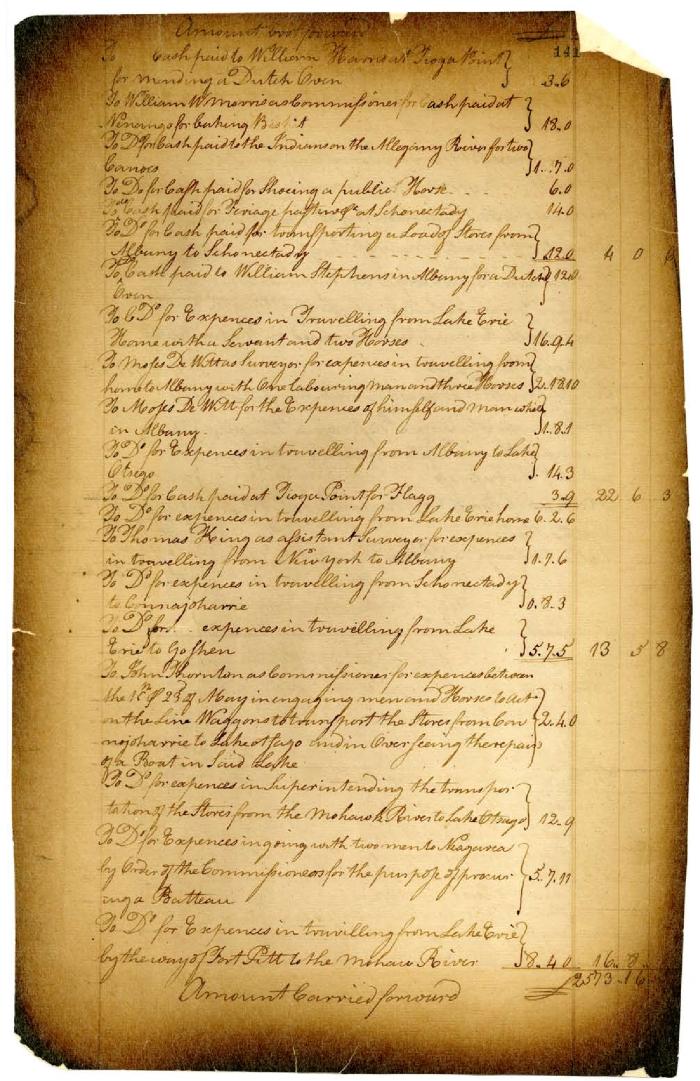 Amount brot forward £
141
To Cash paid to William Harris at Tioga Point
for mending a Dutch Oven 3.6
To William W Morris as Commissioner for Cash paid at
for baking 18.0
To Do for Cash paid to the Indians on the Allegany River for two
Canoes 1..7.0
To Do for Cash paid for Shoeing a public Horse 6.0
To Cash paid for Feriage pasture &c at Schonectady 14.0
To Do for Cash paid for transporting a Load of Stores from
Albany to Schonectady 12.0 4 0
To Cash paid to William Stephens in Albany for a Dutch 12.0
Oven
To Do for Expences in Travelling from Lake Erie
Home with a Servant and two Horses 16.9.4
To Moses De Witt as Surveyor for expences in travelling from
home to Albany with One labouring man and three Horses 2.18.10
To Moses De Witt for the Expences of himself and man while
in Albany. 1.8.1
To Do for Expences in travelling from Albany to Lake
Otsego 14.3
To Do for Cash paid at Tioga Point for Flagg 3.9 22 6 3
To Do for expences in travelling from Lake Erie home 6.2.6
To Thomas King as assistant Surveyor for expences
in travelling from New york to Albany 1.7.6
To Do for expences in travelling from Schonectady
to Connajoharrie 0.8.3
To Do for expences in travelling from Lake
Erie to Goshen 5.7.5 13 5 8
To John Thornton as Commissioner for expences between
the 1st & 23d of May in engaging men and Horses to Act
on the Line Waggons to transport the Stores from Con
nojoharrie to Lake otsago and in Over seeing the repair 2.4.0
of a Boat in Said Lake
To Do for expences in Superintending the transpor-
tation of the Stores from the Mohawk River to Lake Otsego 12.9
To Do for Expences in going with two men to Niagarea
by Order of the Commissioners for the purpose of procur 5.7.11
ing a Batteau
To Do for Expences in travilling from Lake Erie
by the way of Fort Pitt to the Mohawk River 8.4.0 16.8
£2573.16
Amount Carried forward £